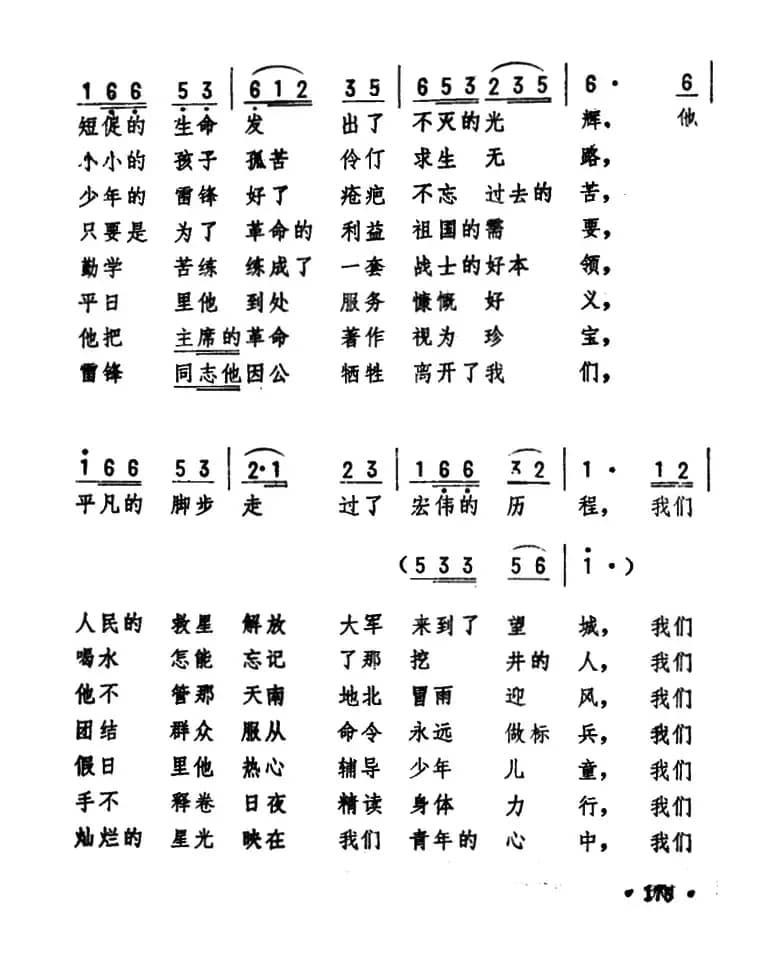 1 6 6 5 3 | 6 1 2 3 5 | 6 5 3 2 3 5 | 6 · 6 |
短促的 生命 发 出了 不灭的光 辉. 他
小小的 孩子 孤苦 伶仃 求生 无 路,
少年的 雷锋 好了 疮疤 不忘 过去的 苦,
只要是 为了 革命的 利益 祖国的需 要,
勤学 苦练 练成了 一套 战士的好本 领,
平日 里他 到处 服务 慷慨 好 义,
他把 主席的革命 著作 视为 珍 宝,
雷锋 同志他因公 牺牲 离开了我 们,
1 6 6 5 3 | 2 · 1 2 3 | 1 6 6 3 2 | 1 · 1 2 |
平凡的 脚步 走 过了 宏伟的 历 程, 我们
(5 3 3 5 6 | 1 ·)
人民的 救星 解放 大军 来到了 望 城, 我们
喝水 怎能 忘记 了那 挖 井的 人, 我们
他不 管那 天南 地北 冒雨 迎 风, 我们
团结 群众 服从 命令 永远 做标 兵, 我们
假日 里他 热心 辅导 少年 儿 童, 我们
手不 释卷 日夜 精读 身体 力 行, 我们
灿烂的 星光 映在 我们 青年的 心 中, 我们